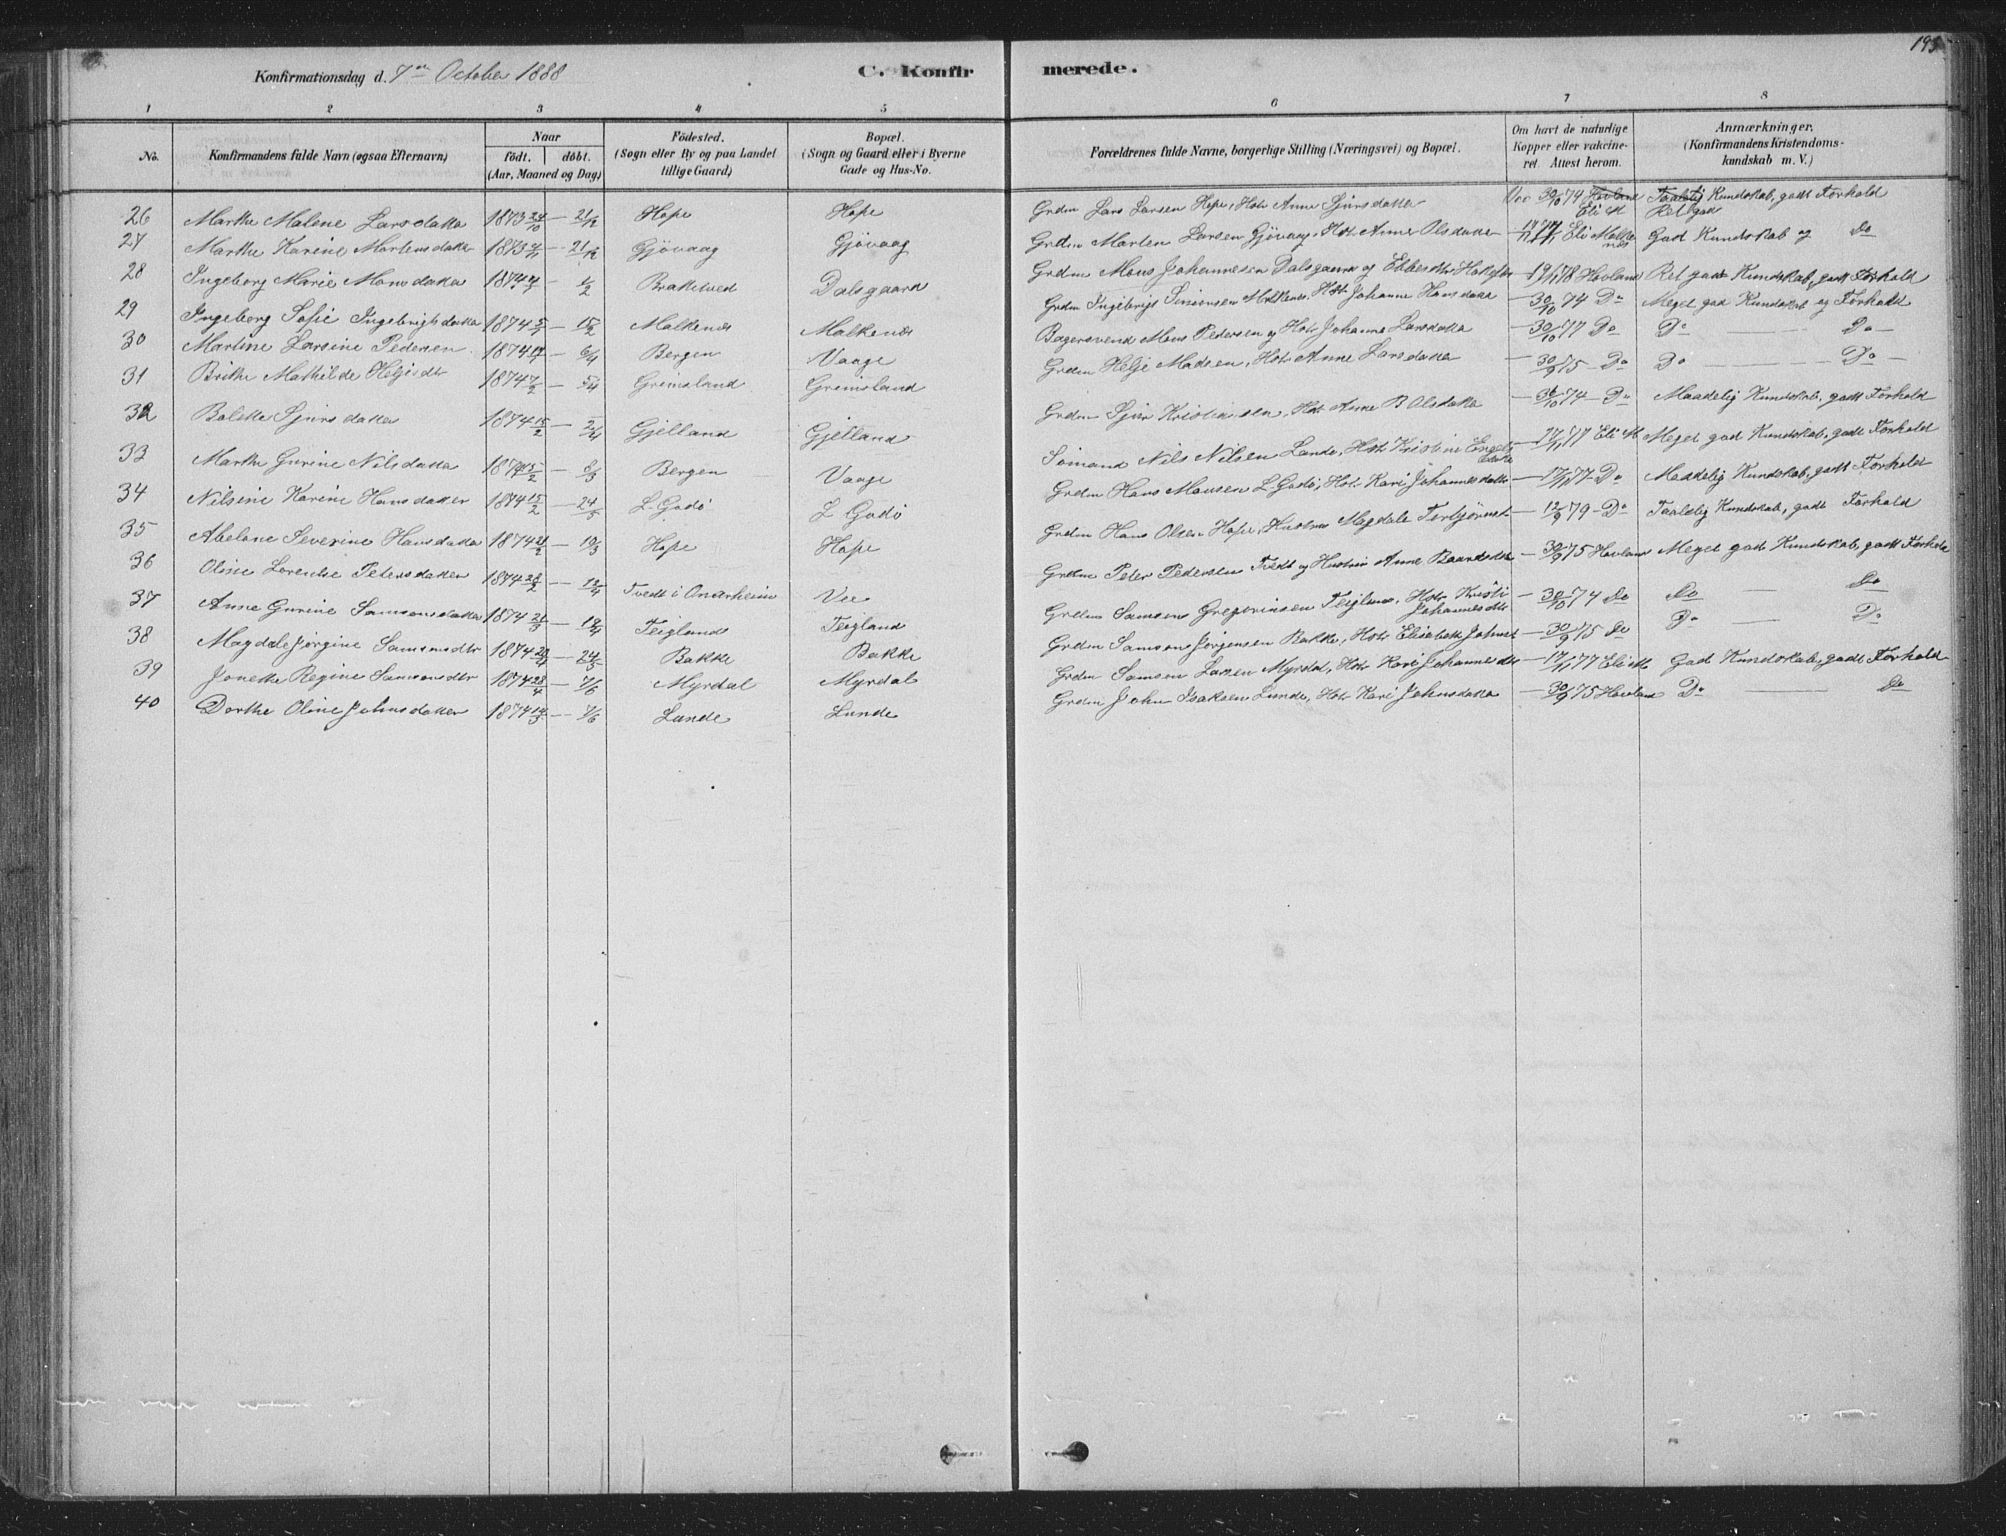 195
Konfirmationsdag d. 7de October 1888 C. Konfirmerede.
1 2 3 4 5 6 7 8
No. Konfirmandens fulde Navn (ogsaa Efternavn) Naar født. døbt. (Aar, Maaned og Dag) Fødested. (Sogn eller By og paa Landet tillige Gaard) Bopæl. (Sogn og Gaard eller i Byerne Gade og Hus-No. Forældrenes fulde Navne, borgerlige Stilling (Næringsvei) og Bopæl. Om havt de naturlige Kopper eller vakcineret. Attest herom. Anmærkninger. (Konfirmandens Kristendomskundskab m. V.)
26 Marthe Malene Larsdatter 1873 24/10 — 21/12 Hope Hope Grdm Lars Larsen Hope, Hstr Anne Sjursdatter Vac 30/10 74 Havland Eli M Taalelig Kundskab, godt Forhold Ret god
27 Marthe Karine Martensdatter 1873 4/11 — 21/12 Gjövaag Gjövaag Grdm Marten Larsen Gjövaag, Hstr Anne Olsdatter — Eli Malkenes God Kundskab og Do
28 Ingeborg Marie Monsdatter 1874 — 1/2 Brakeved Dalsgaard Grdm Mons Johannesen Dalsgaard og — 19/11 78 Havland Ret god Kundskab, godt Forhold
29 Ingeborg Sofie Ingebrigtsdatter 1874 5/1 — 15/2 Malkenæs Malkenæs Grdm Ingebrigt Simonsen Malkenæs, Hstr Johanne Hansdatter — 30/10 74 Do Meget god Kundskab og Forhold
30 Martine Larsine Pedersen 1874 — 6/4 Bergen Vaage Bagersvend Mons Pedersen og Hstr Johanne Larsdatter — 30/10 77 Do Do — Do —
31 Brithe Mathilde Heljesdtr 1874 7/2 — 5/4 Grimsland Grimsland Grdm Helje Madsen, Hstr Anne Larsdatter — 30/9 75 — Do Do — Do —
32 Bolette Sjursdatter 1874 15/2 — 2/4 Gjelland Gjelland Grdm Sjur Kristensen, Hstr Anne B Olsdatter — 30/10 74 — Do Maadelig Kundskab, godt Forhold
33 Marthe Gurine Nilsdatter 1874 15/2 — 8/3 Bergen Vaage Sömand Nils Nilsen Lande, Hstr Kristine Engels — 17/11 77 Eli M Meget god Kundskab, godt Forhold
34 Nilsine Karine Hansdatter 1874 15/2 — 24/5 L. Godö L Godö Grdm Hans Monsen L Godö, Hstr Kari Johannesdatter — 17/11 77 — Do Maadelig Kundskab, godt Forhold
35 Abelone Severine Hansdatter 1874 21/2 — 19/3 Hope Hope Grdm Hans Olsen Hope, Hustru Magdale Torbjörnsd — 12/9 79 — Do Taalelig Kundskab, godt Forhold
36 Oline Lorentse Petersdatter 1874 22/2 — 12/4 Tvedt i Onarheim Vee Grdm Peter Pedersen Tvedt og Hustru Anne Baardsdtr — 30/9 75 Havland Meget god Kundskab, godt Forhold
37 Anne Gurine Samsonsdatter 1874 21/3 — 19/4 Teigland Teigland Grdm Samson Gregoriusen Teigland, Hstr Kristi Johannesdtr — 30/10 74 Do Do — Do
38 Magdele Jørgine Samsonsdtr 1874 20/4 — 24/5 Bakke Bakke Grdm Samson Jørgensen Bakke, Hstr Elisabeth Johnsd — 30/9 75 Do Do — Do
39 Jonette Regine Samsonsdtr 1874 23/4 — 7/6 Myrdal Myrdal Grdm Samson Larsen Myrdal, Hstr Kari Johannesdtr — 17/11 77 Eli M God Kundskab, godt Forhold
40 Dorthe Oline Johnsdatter 1874 14/5 — 7/6 Lunde Lunde Grdm John Isaksen Lunde, Hstr Kari Johnsdatter — 30/9 75 Havland Do — Do